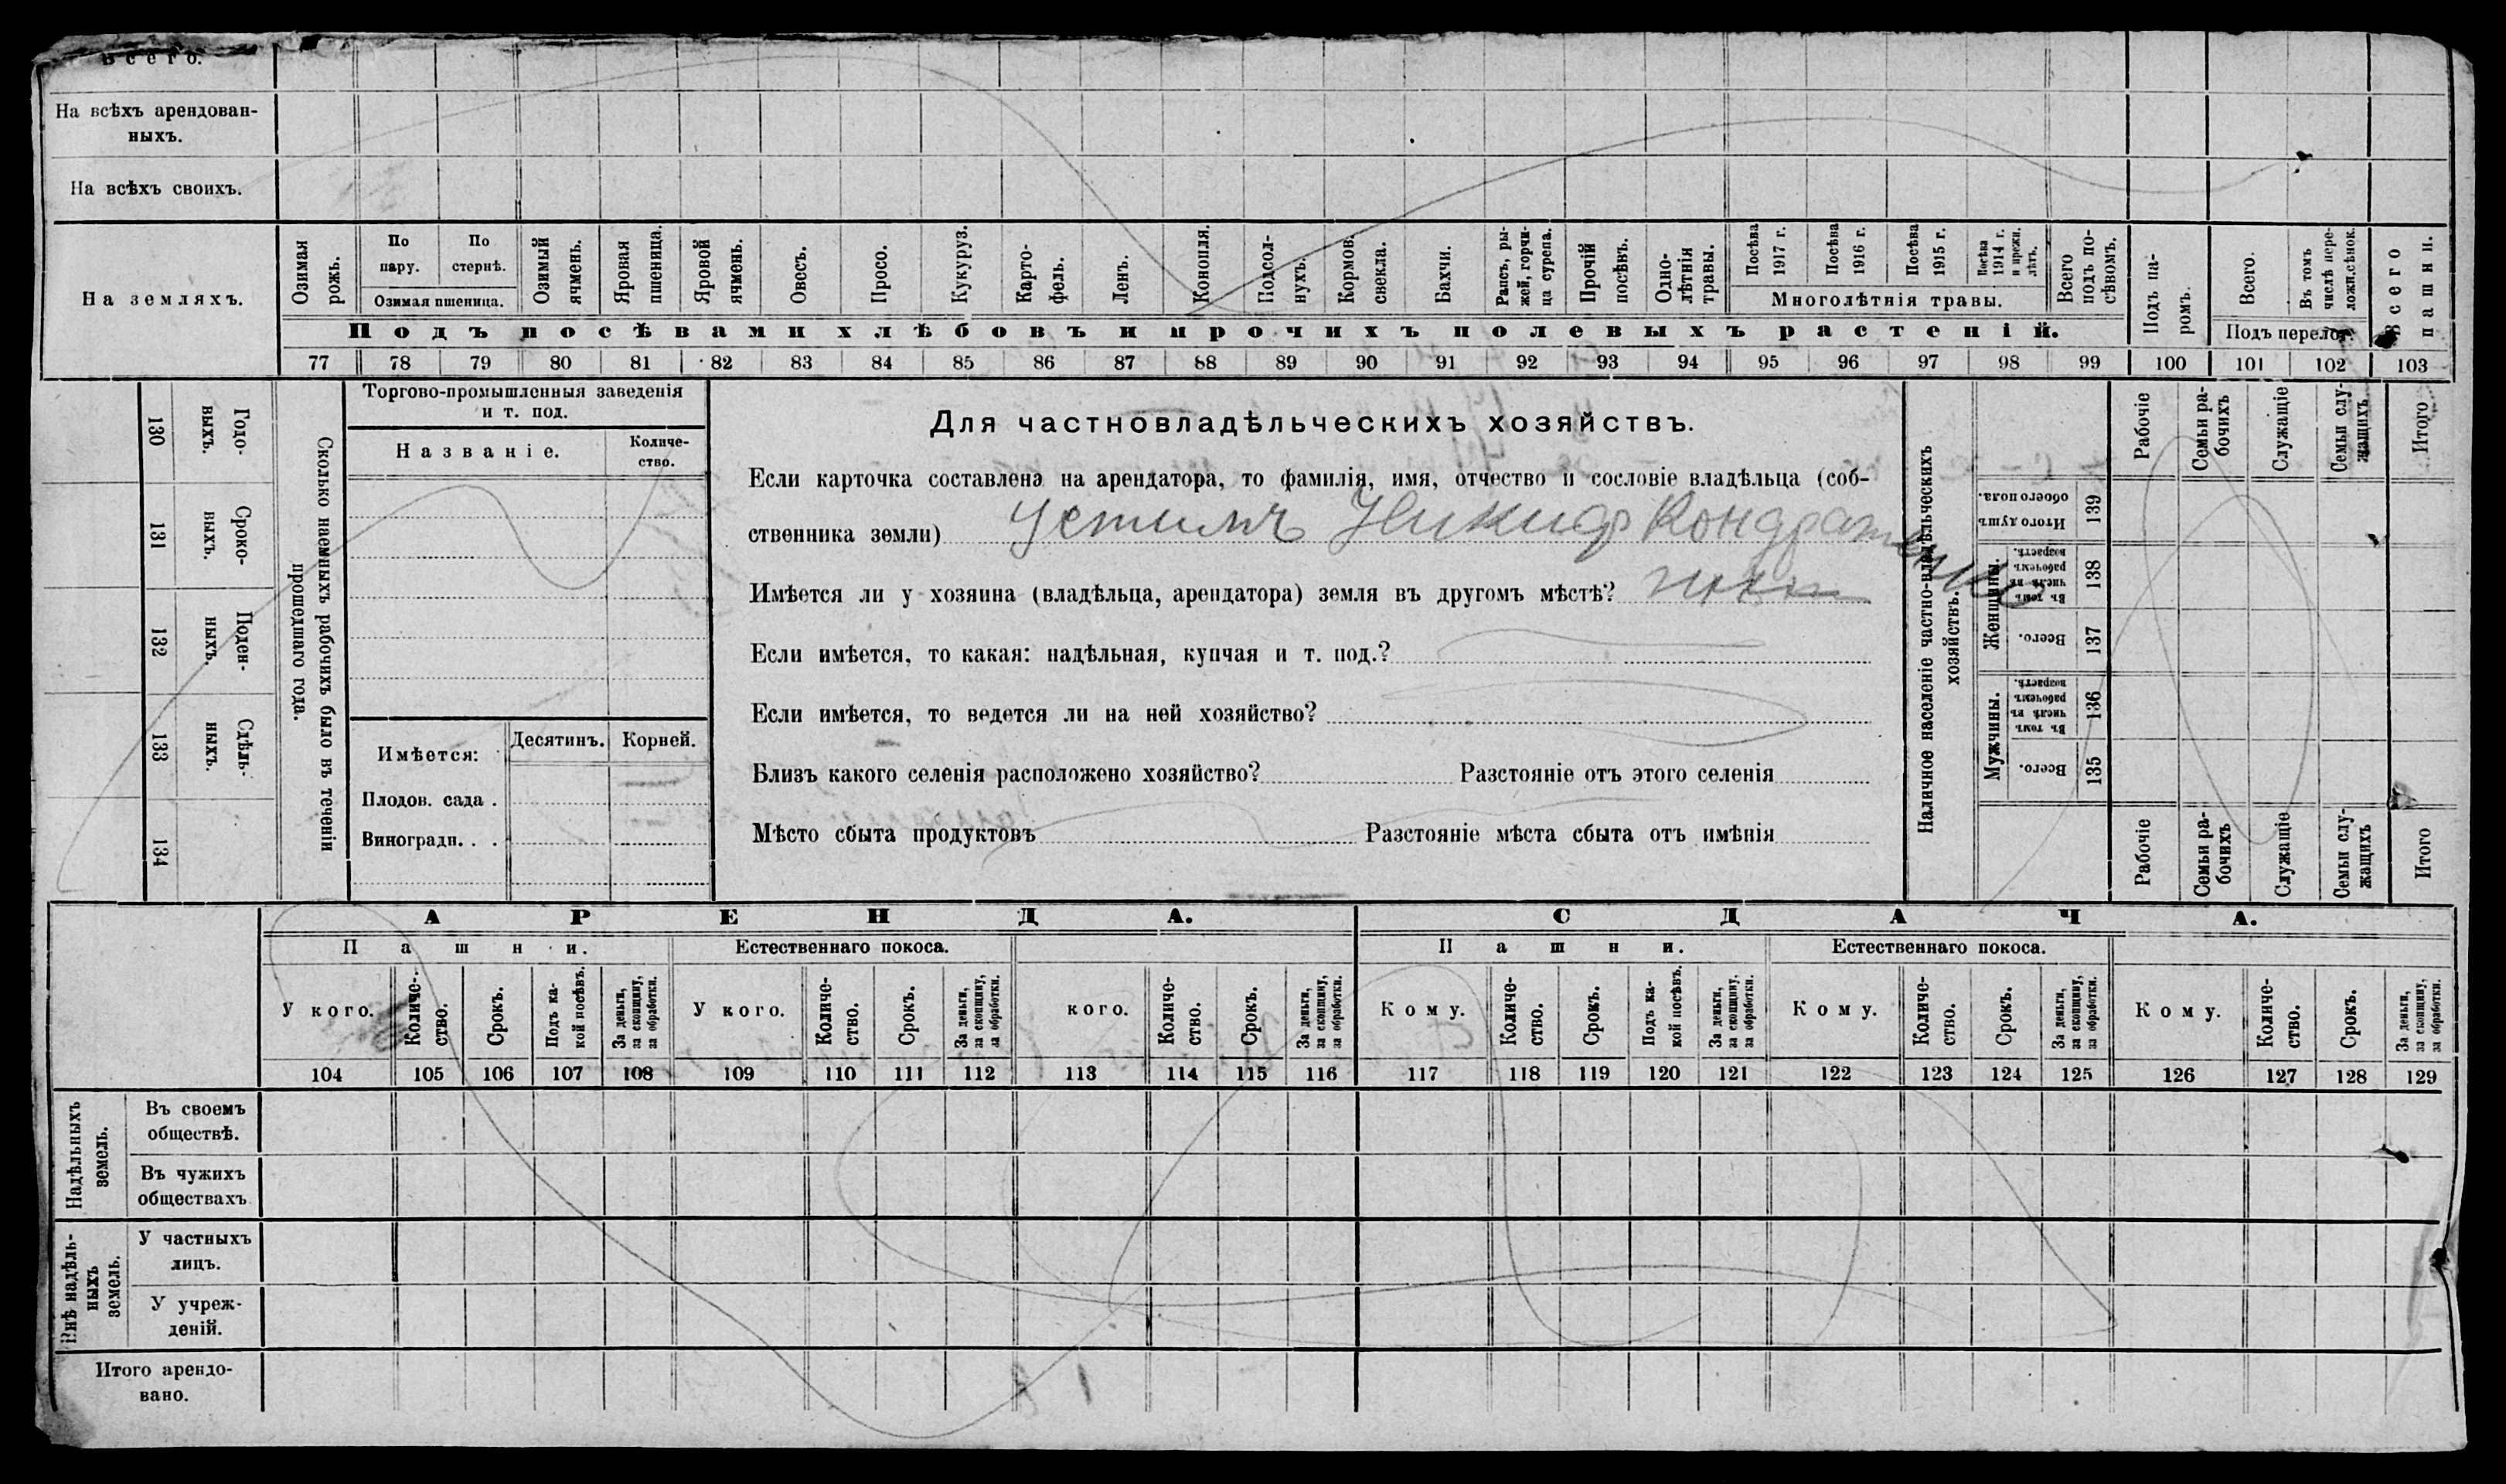 Всего.
На всѣхъ арендован-
ныхъ.
На всѣхъ своихъ.
На земляхъ.
Озимая рожь.
По пару.
По стернѣ.
Озимая пшеница.
Озимый ячмень.
Яровая пшеница.
Яровой ячмень.
Овесъ.
Просо.
Кукуруз.
Карто-
фель.
Ленъ.
Конопля.
Подсол-
нухъ.
Кормов. свекла.
Бахчи.
Рапсъ, ры-
жей, горчи-
ца сурепа.
Прочій посѣвъ.
Одно-
лѣтнія травы.
Посѣва 1917 г.
Посѣва 1916 г.
Посѣва 1915 г.
Посѣва 1914 г. и прежн. лѣтъ.
Многолѣтнія травы.
Всего подъ по-
сѣвомъ.
Подъ па-
ромъ.
Всего.
Въ томъ числѣ пере-
Подъ перелог.
Всего пашни.
Подъ посѣвами хлѣбовъ и прочихъ полевыхъ растеній.
77 78 79 80 81 82 83 84 85 86 87 88 89 90 91 92 93 94 95 96 97 98 99 100 101 102 103
130 Годо-
выхъ.
131 Сроко-
выхъ.
132 Поден-
ныхъ.
133 Сдѣль-
ныхъ.
134
Сколько наемныхъ рабочихъ было въ теченіи
прошедшаго года.
Торгово-промышленныя заведенія
и т. под.
Названіе.
Количе-
ство.
Имѣется:
Десятинъ.
Корней.
Плодов. сада .
Виноградн. . .
Для частновладѣльческихъ хозяйствъ.
Если карточка составлена на арендатора, то фамилія, имя, отчество и сословіе владѣльца (соб-
ственника земли) Устимъ Никиф Кондратенко
Имѣется ли у хозяина (владѣльца, арендатора) земля въ другомъ мѣстѣ?
Если имѣется, то какая: надѣльная, купчая и т. под.?
Если имѣется, то ведется ли на ней хозяйство?
Близъ какого селенія расположено хозяйство? Разстояніе отъ этого селенія
Мѣсто сбыта продуктовъ Разстояніе мѣста сбыта отъ имѣнія
Наличное населеніе частно-владѣльческихъ
хозяйствъ.
Рабочіе
Семьи ра-
бочихъ
Служащіе
Семьи слу-
жащихъ
Итого
139 Итого душъ обоего пола.
Женщины.
138 Въ томъ числѣ въ рабочемъ возрастѣ.
137 Всего.
Мужчины.
136 Въ томъ числѣ въ рабочемъ возрастѣ.
135 Всего.
Рабочіе
Семьи ра-
бочихъ
Служащіе
Семьи слу-
жащихъ
Итого
АРЕНДА.
СДАЧА.
Пашни.
Естественнаго покоса.
Пашни.
Естественнаго покоса.
У кого.
Количе-
ство.
Срокъ.
Подъ ка-
кой посѣвъ.
За деньги,
за скопщину,
за обработки.
У кого.
Количе-
ство.
Срокъ.
За деньги,
за скопщину,
за обработки.
кого.
Количе-
ство.
Срокъ.
За деньги,
за скопщину,
за обработки.
Кому.
Количе-
ство.
Срокъ.
Подъ ка-
кой посѣвъ.
За деньги,
за скопщину,
за обработки.
Кому.
Количе-
ство.
Срокъ.
За деньги,
за скопщину,
за обработки.
Кому.
Количе-
ство.
Срокъ.
За деньги,
за скопщину,
за обработки.
104 105 106 107 108 109 110 111 112 113 114 115 116 117 118 119 120 121 122 123 124 125 126 127 128 129
Надѣльныхъ
земель.
Въ своемъ
обществѣ.
Въ чужихъ
обществахъ
Внѣ надѣль-
ныхъ
земель.
У частныхъ
лицъ.
У учреж-
деній.
Итого арендо-
вано.